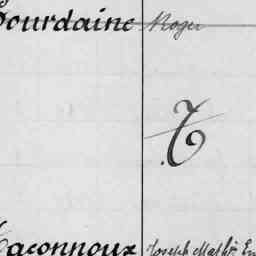 Sourdaine Roger
T
Taconnoux Joseph